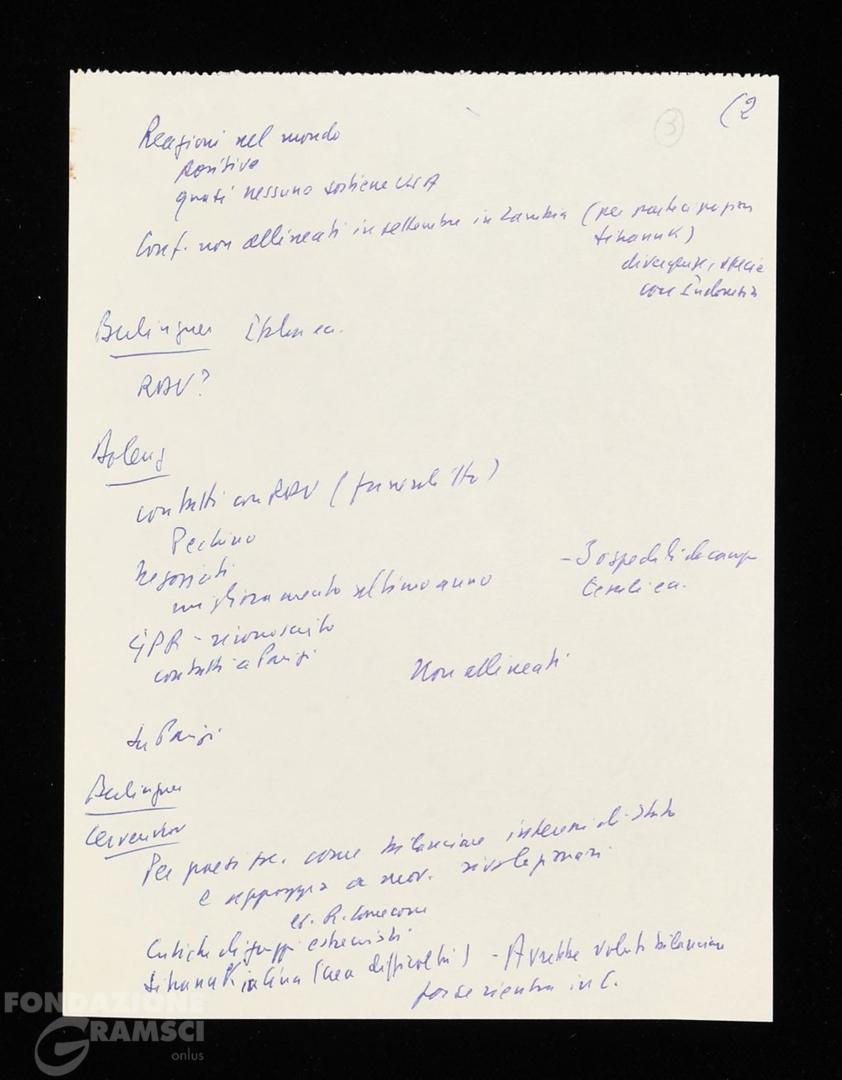 (2
3
Reazioni nel mondo
positive
quasi nessuno sostiene USA
Conf. non allineati in settembre in Zambia (per
Sihanuk)
divergenze, specie
con Indonesia
Berlinguer
RDV?
contatti con RDV (
Pechino
Negoziati
miglioramento ultimo anno
- 3 ospedali da campo
GPR - riconosciuto
contatti a Parigi
Non allineati
su Parigi
Berlinguer
Cervenkov
Per paesi soc. come bilanciare interessi di Stato
e appoggio a mov. rivoluzionari
es. R.
Critiche di gruppi estremisti
Sihanuk in Cina (crea difficoltà) - Avrebbe voluto bilanciare
forse rientra in C.
FONDAZIONE
GRAMSCI
onlus